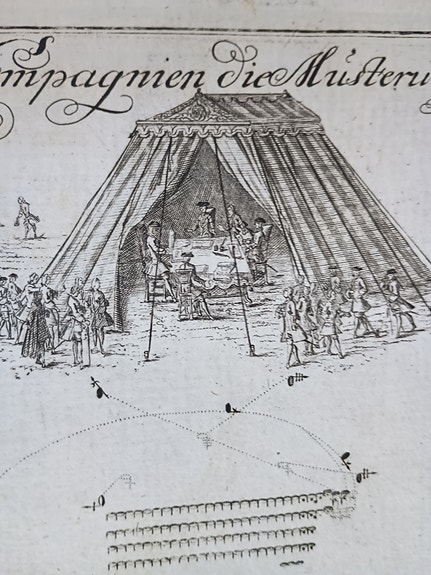 ompagnien die Muster